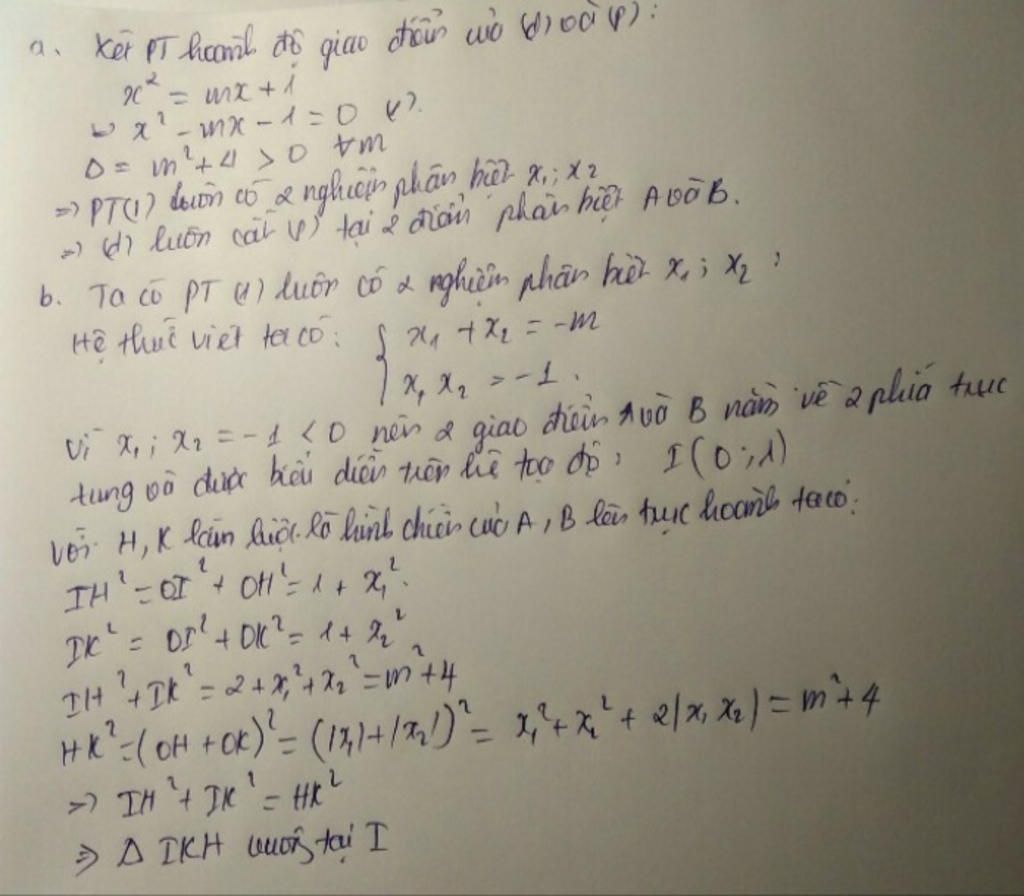 a. Xét PT hoành độ giao điểm của (d) và (P):
x² = mx + 1
↔ x² - mx - 1 = 0 (1).
Δ = m² + 4 > 0 ∀m
=> PT(1) luôn có 2 nghiệm phân biệt x₁; x₂
=> (d) luôn cắt (P) tại 2 điểm phân biệt A và B.
b. Ta có PT (1) luôn có 2 nghiệm phân biệt x₁; x₂;
Hệ thức viet ta có: { x₁ + x₂ = -m
x₁ x₂ = -1.
Vì x₁; x₂ = -1 < 0 nên 2 giao điểm A và B nằm về 2 phía trục
tung và được biểu diễn trên hệ tọa độ; I(0;1)
Với H, K lần lượt là hình chiếu của A, B lên trục hoành ta có:
IH² = OI² + OH² = 1 + x₁².
IK² = OI² + OK² = 1 + x₂²
IH² + IK² = 2 + x₁² + x₂² = m² + 4
HK² = (OH + OK)² = (|x₁| + |x₂|)² = x₁² + x₂² + 2|x₁ x₂| = m² + 4
=> IH² + IK² = HK²
=> Δ IKH vuông tại I